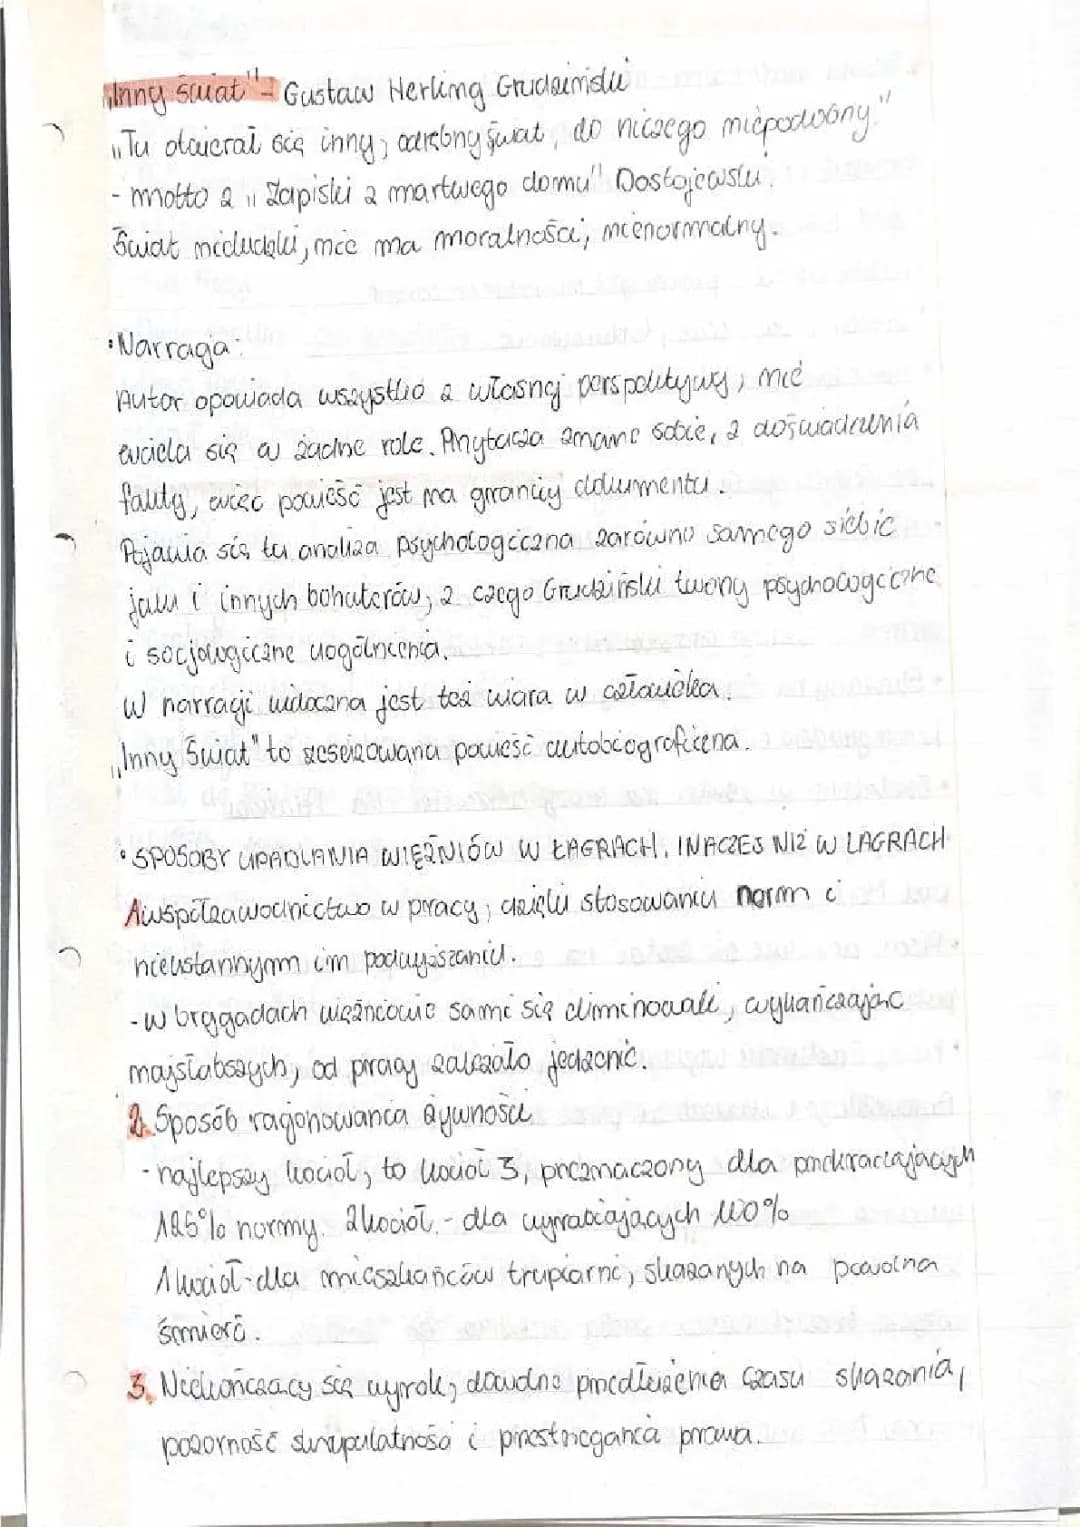 „Inny świat" - Gustaw Herling Grudziński
„Tu otwierał się inny, odrębny świat, do niczego niepodobny."
- motto z „Zapiski z martwego domu" Dostojewski.
Świat nieludzki, nie ma moralności, nienormalny.
• Narracja:
Autor opowiada wszystko z własnej perspektywy, nie
wciela się w żadne role. Przytacza znane sobie, z doświadczenia
fakty, więc powieść jest na granicy dokumentu.
Pojawia się tu analiza psychologiczna zarówno samego siebie
jak i innych bohaterów, z czego Grudziński tworzy psychologiczne
i socjologiczne uogólnienia.
W narracji widoczna jest też wiara w człowieka.
„Inny Świat" to zeseizowana powieść autobiograficzna.
• SPOSOBY UPADLANIA WIĘŹNIÓW W ŁAGRACH. INACZEJ NIŻ W LAGRACH
1. współzawodnictwo w pracy, dzięki stosowaniu norm i
nieustannym im podwyższaniu.
- w brygadach więźniowie sami się eliminowali, wykańczając
najsłabszych, od pracy zależało jedzenie.
2. Sposób racjonowania żywności
- najlepszy kocioł, to kocioł 3, przeznaczony dla przekraczających
125% normy. 2 kocioł - dla wyrabiających 100%
1 kocioł - dla mieszkańców trupiarni, skazanych na powolna
śmierć.
3. Niekończący się wyrok, dowolne przedłużenia czasu skazania,
pozorność skrupulatności i przestrzegania prawa.